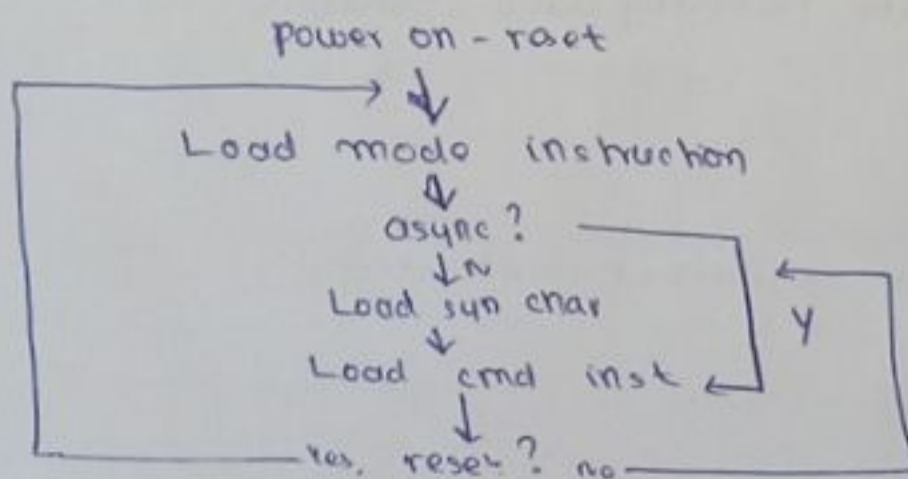 power on-reset
Load mode instruction
async?
N
Load syn char
Y
Load cmd inst
Yes, reset? no